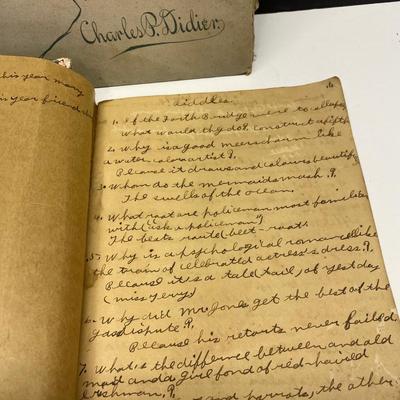 Charles P. Didier.
this year many
is year friend
riddles.
1. If the Forth Bridge were to collapse
What would thy do?. Construct a fifth
2. Why is a good meerscharm like
a water colour artist?.
Because it draws and colours beautifully
3. Whom do the mermaids mash.?.
The swells of the ocean.
4. What root are policeman most familiar
with (ask a policeman?)
The beats route (beet-root.
5. Why is a psychological romance like
the train of celebrated actress's dress?.
Because it's a tale (tail) of yesterday
(miss Terry)
6. Why did Mr. Jones get the best of the
gas dispute?.
Because his retorts never failed.
7. What is the difference between and ald
maid and a girl fond of red-haired
Irishman.?.
and parrots, the other